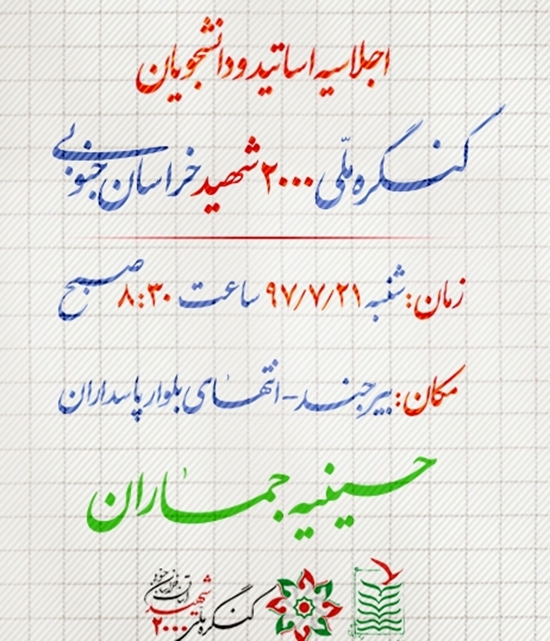 اجلاسیه اساتید و دانشجویان
کنگره ملّی ۲۰۰۰ شهید خراسان جنوبی
زمان: شنبه ۹۷/۷/۲۱ ساعت ۸:۳۰ صبح
مکان: بیرجند - انتهای بلوار پاسداران
حسینیه جماران
کنگره ملّی
۲۰۰۰ شهید
استان خراسان جنوبی